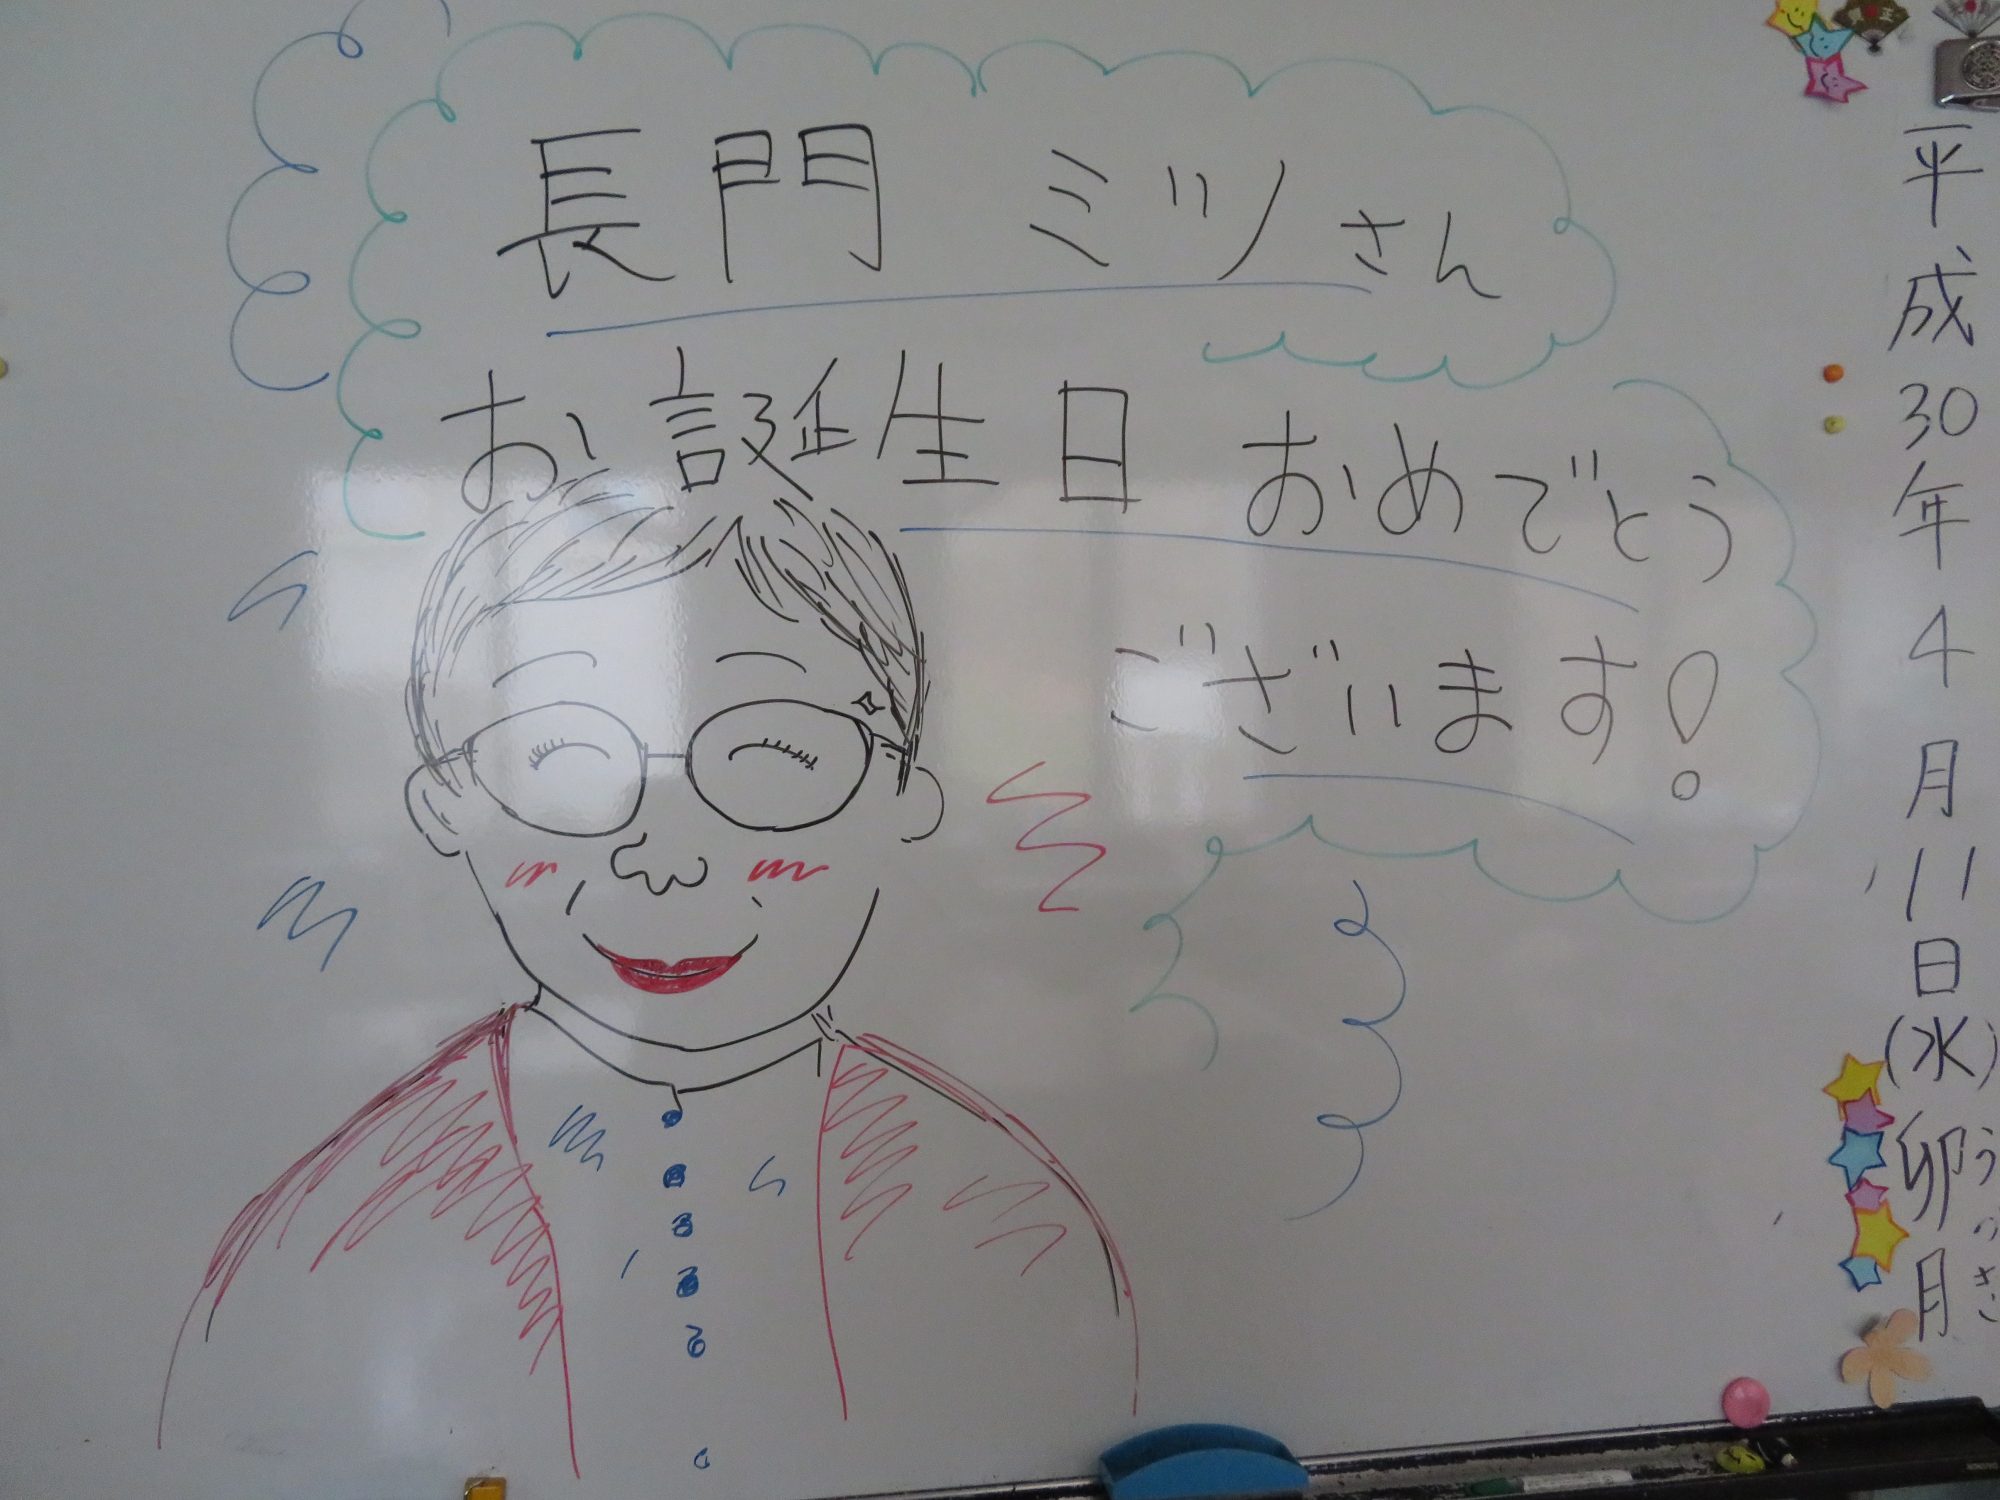 長門 ミツさん
お誕生日 おめでとう
ございます!
平成30年4月11日(水)卯月
うづき